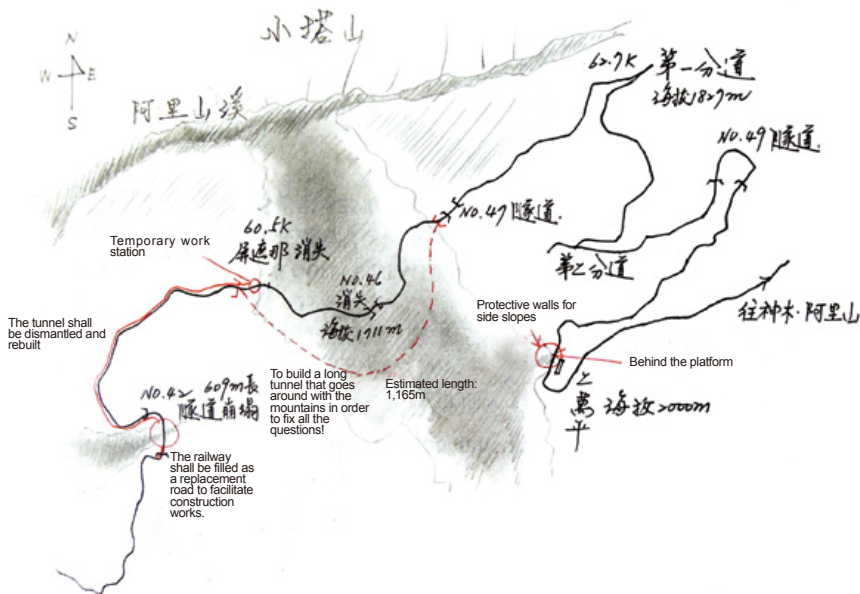 小塔山
N
W E
S
阿里山溪
62.7K
第一分道
海拔1827m
NO.49隧道
NO.47隧道
60.5K
屏遮那 消失
Temporary work
station
NO.46
消失
海拔1711m
第二分道
往神木·阿里山
Protective walls for
side slopes
Behind the platform
The tunnel shall
be dismantled and
rebuilt
To build a long
tunnel that goes
around with the
mountains in order
to fix all the
questions!
Estimated length:
1,165m
NO.42 609m長
隧道崩塌
二萬平 海拔2000m
The railway
shall be filled as
a replacement
road to facilitate
construction
works.